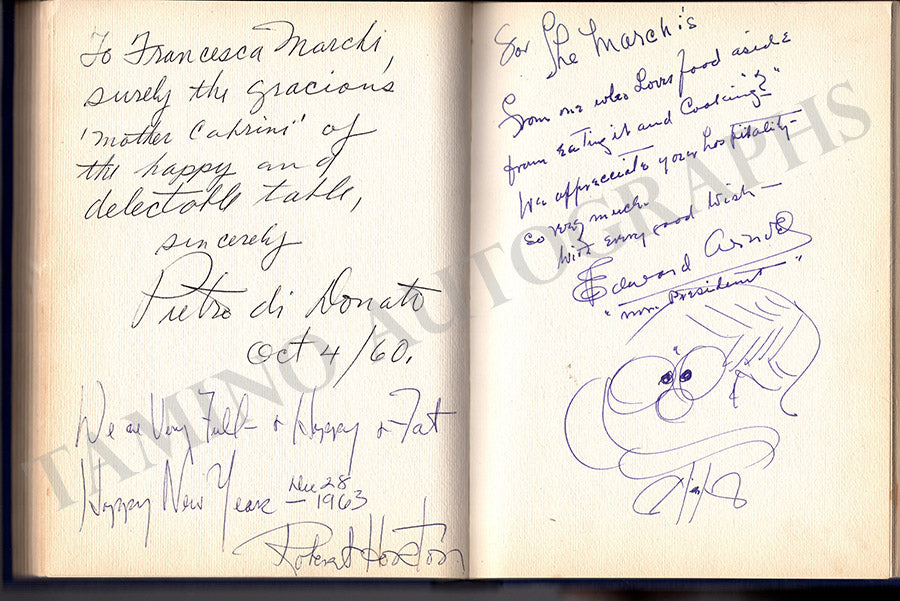 To Francesca Marchi,
surely the gracious
'mother Cabrini' of
the happy and
delectable table,
sincerely
Pietro di Donato
Oct 4/60.
We are Very Full - & Happy & Fat
Happy New Year Dec 28
1963
Robert Horton
For The Marchi's
From one who Loves food aside
from Eating it and Cooking"
We appreciate your hospitality -
so very much.
With every good Wish -
Edward Arnold
"Mr. President"
TAMINO AUTOGRAPHS